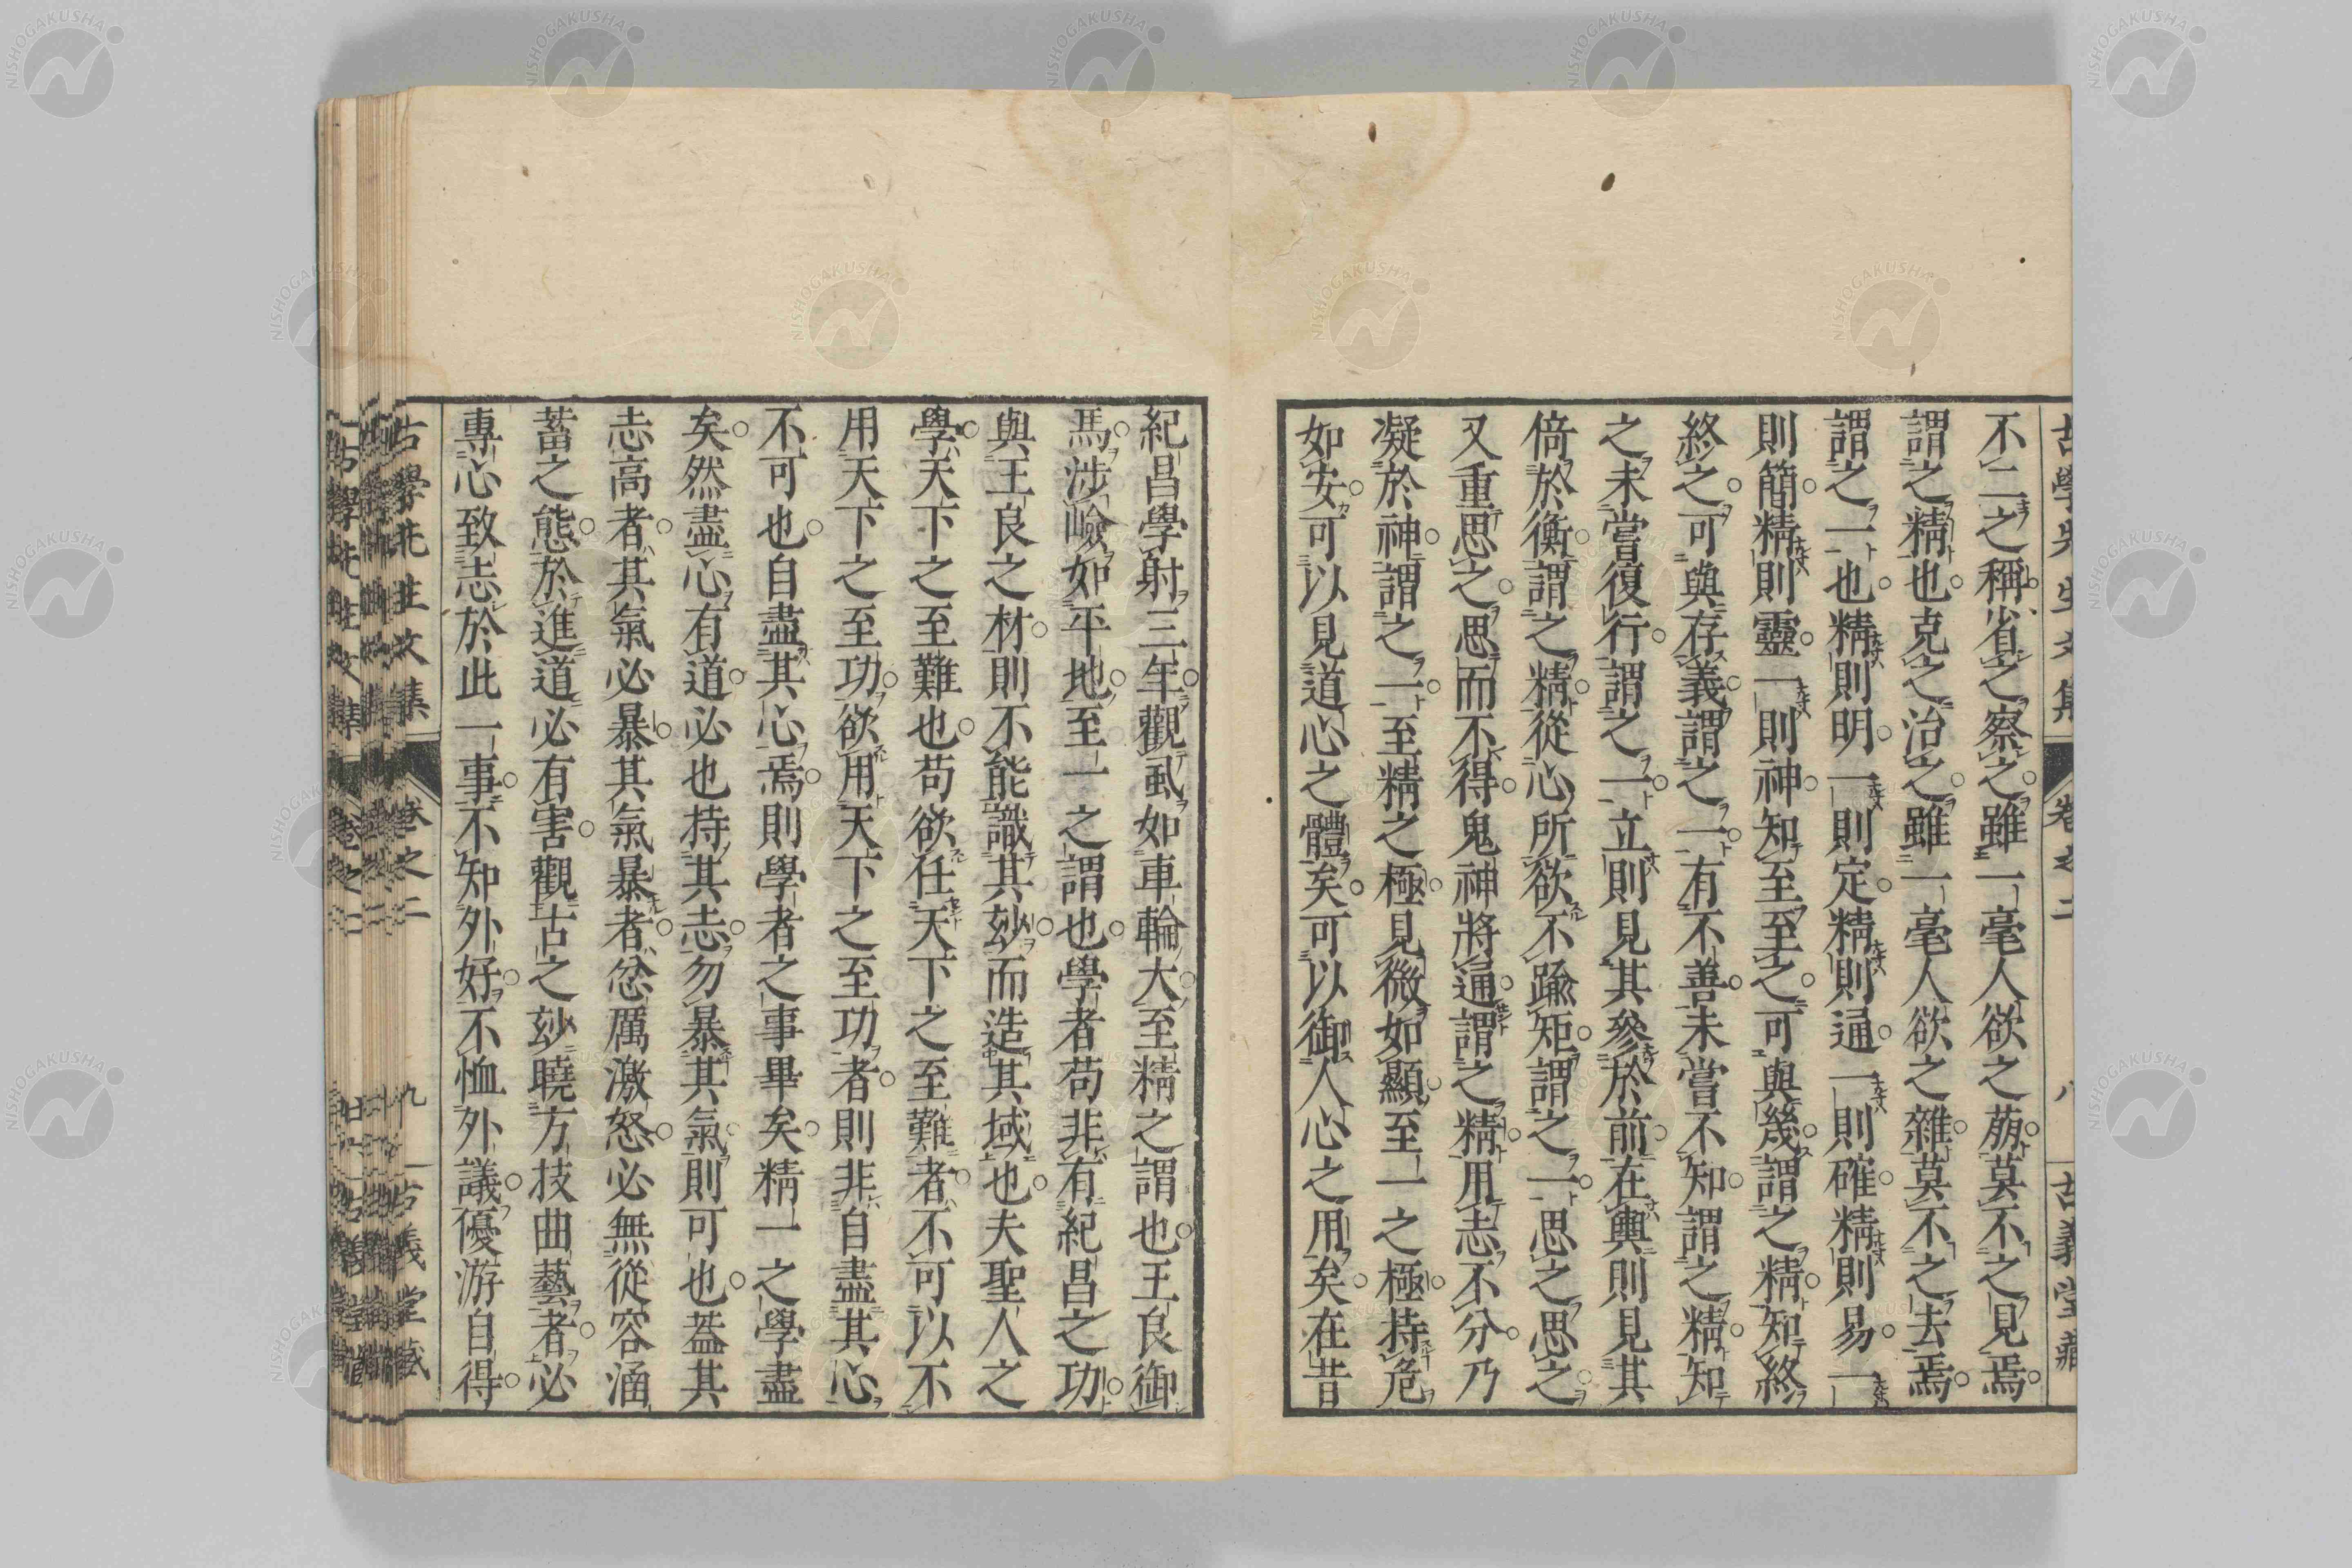 古學先生文集 卷之二 八 古義堂藏
不二之稱省之察之雖一毫人欲之萠莫不之見焉
謂之精也克之治之雖一毫人欲之雜莫不之去焉
謂之一也精則明一則定精則通一則確精則易一
則簡精則靈一則神知至至之可與幾謂之精知終
終之可與存義謂之一有不善未嘗不知謂之精知
之未嘗復行謂之一立則見其參於前在輿則見其
倚於衡謂之精從心所欲不踰矩謂之一思之思之
又重思之思而不得鬼神將通謂之精用志不分乃
凝於神謂之一至精之極見微如顯至一之極持危
如安可以見道心之體矣可以御人心之用矣在昔
紀昌學射三年觀虱如車輪大至精之謂也王良御
馬涉嶮如平地至一之謂也學者苟非有紀昌之功
與王良之材則不能識其玅而造其域也夫聖人之
學天下之至難也苟欲任天下之至難者不可以不
用天下之至功欲用天下之至功者則非自盡其心
不可也自盡其心焉則學者之事畢矣精一之學盡
矣然盡心有道必也持其志勿暴其氣則可也葢其
志高者其氣必暴其氣暴者忿厲激怒必無從容涵
蓄之態於進道必有害觀古之玅曉方技曲藝者必
專心致志於此一事不知外好不恤外議優游自得
古學先生文集 卷之二 九 古義堂藏